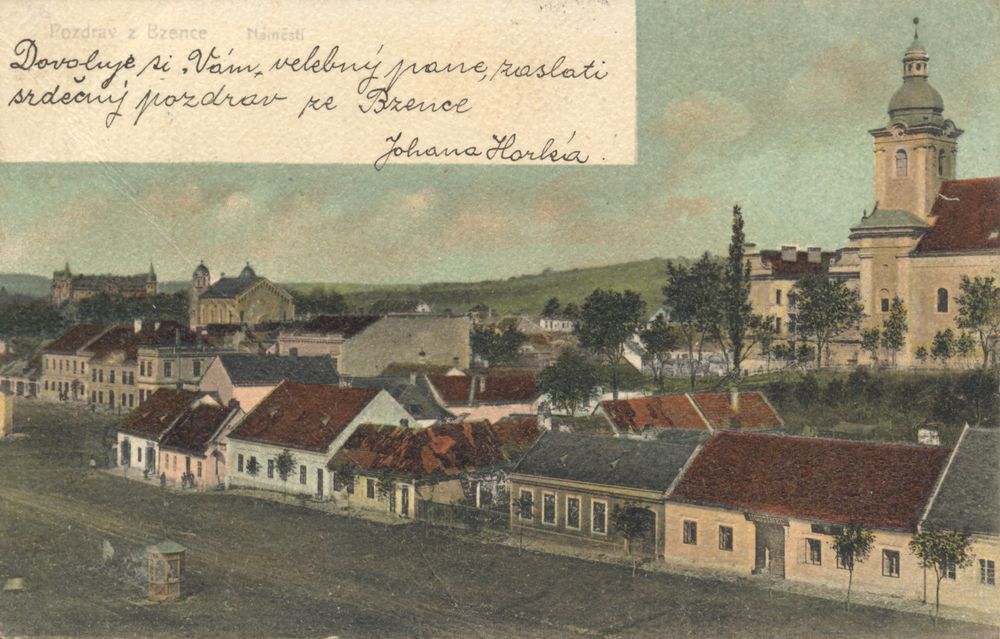 Pozdrav z Bzence Náměstí
Dovoluje si Vám, velebný pane, zaslati
srdečný pozdrav ze Bzence
Johana Horká